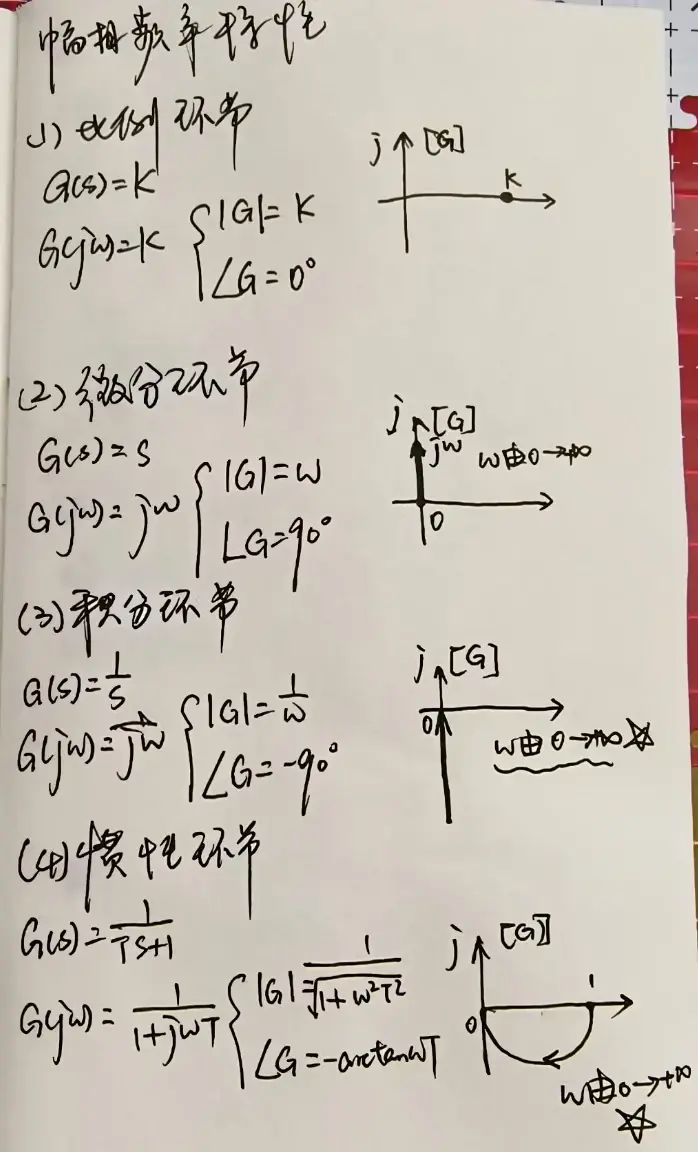 幅相频率特性
(1) 比例环节
G(s)=K
G(jω)=K { |G|=K
∠G=0°
j [G]
K
(2) 微分环节
G(s)=s
G(jω)=jω { |G|=ω
∠G=90°
j [G]
jω ω由0→+∞
0
(3) 积分环节
G(s)=1/s
G(jω)=1/jω { |G|=1/ω
∠G=-90°
j [G]
0
ω由0→+∞ ☆
(4) 惯性环节
G(s)=1/(Ts+1)
G(jω)=1/(1+jωT) { |G|=1/√(1+ω²T²)
∠G=-arctanωT
j [G]
0 1
ω由0→+∞
☆